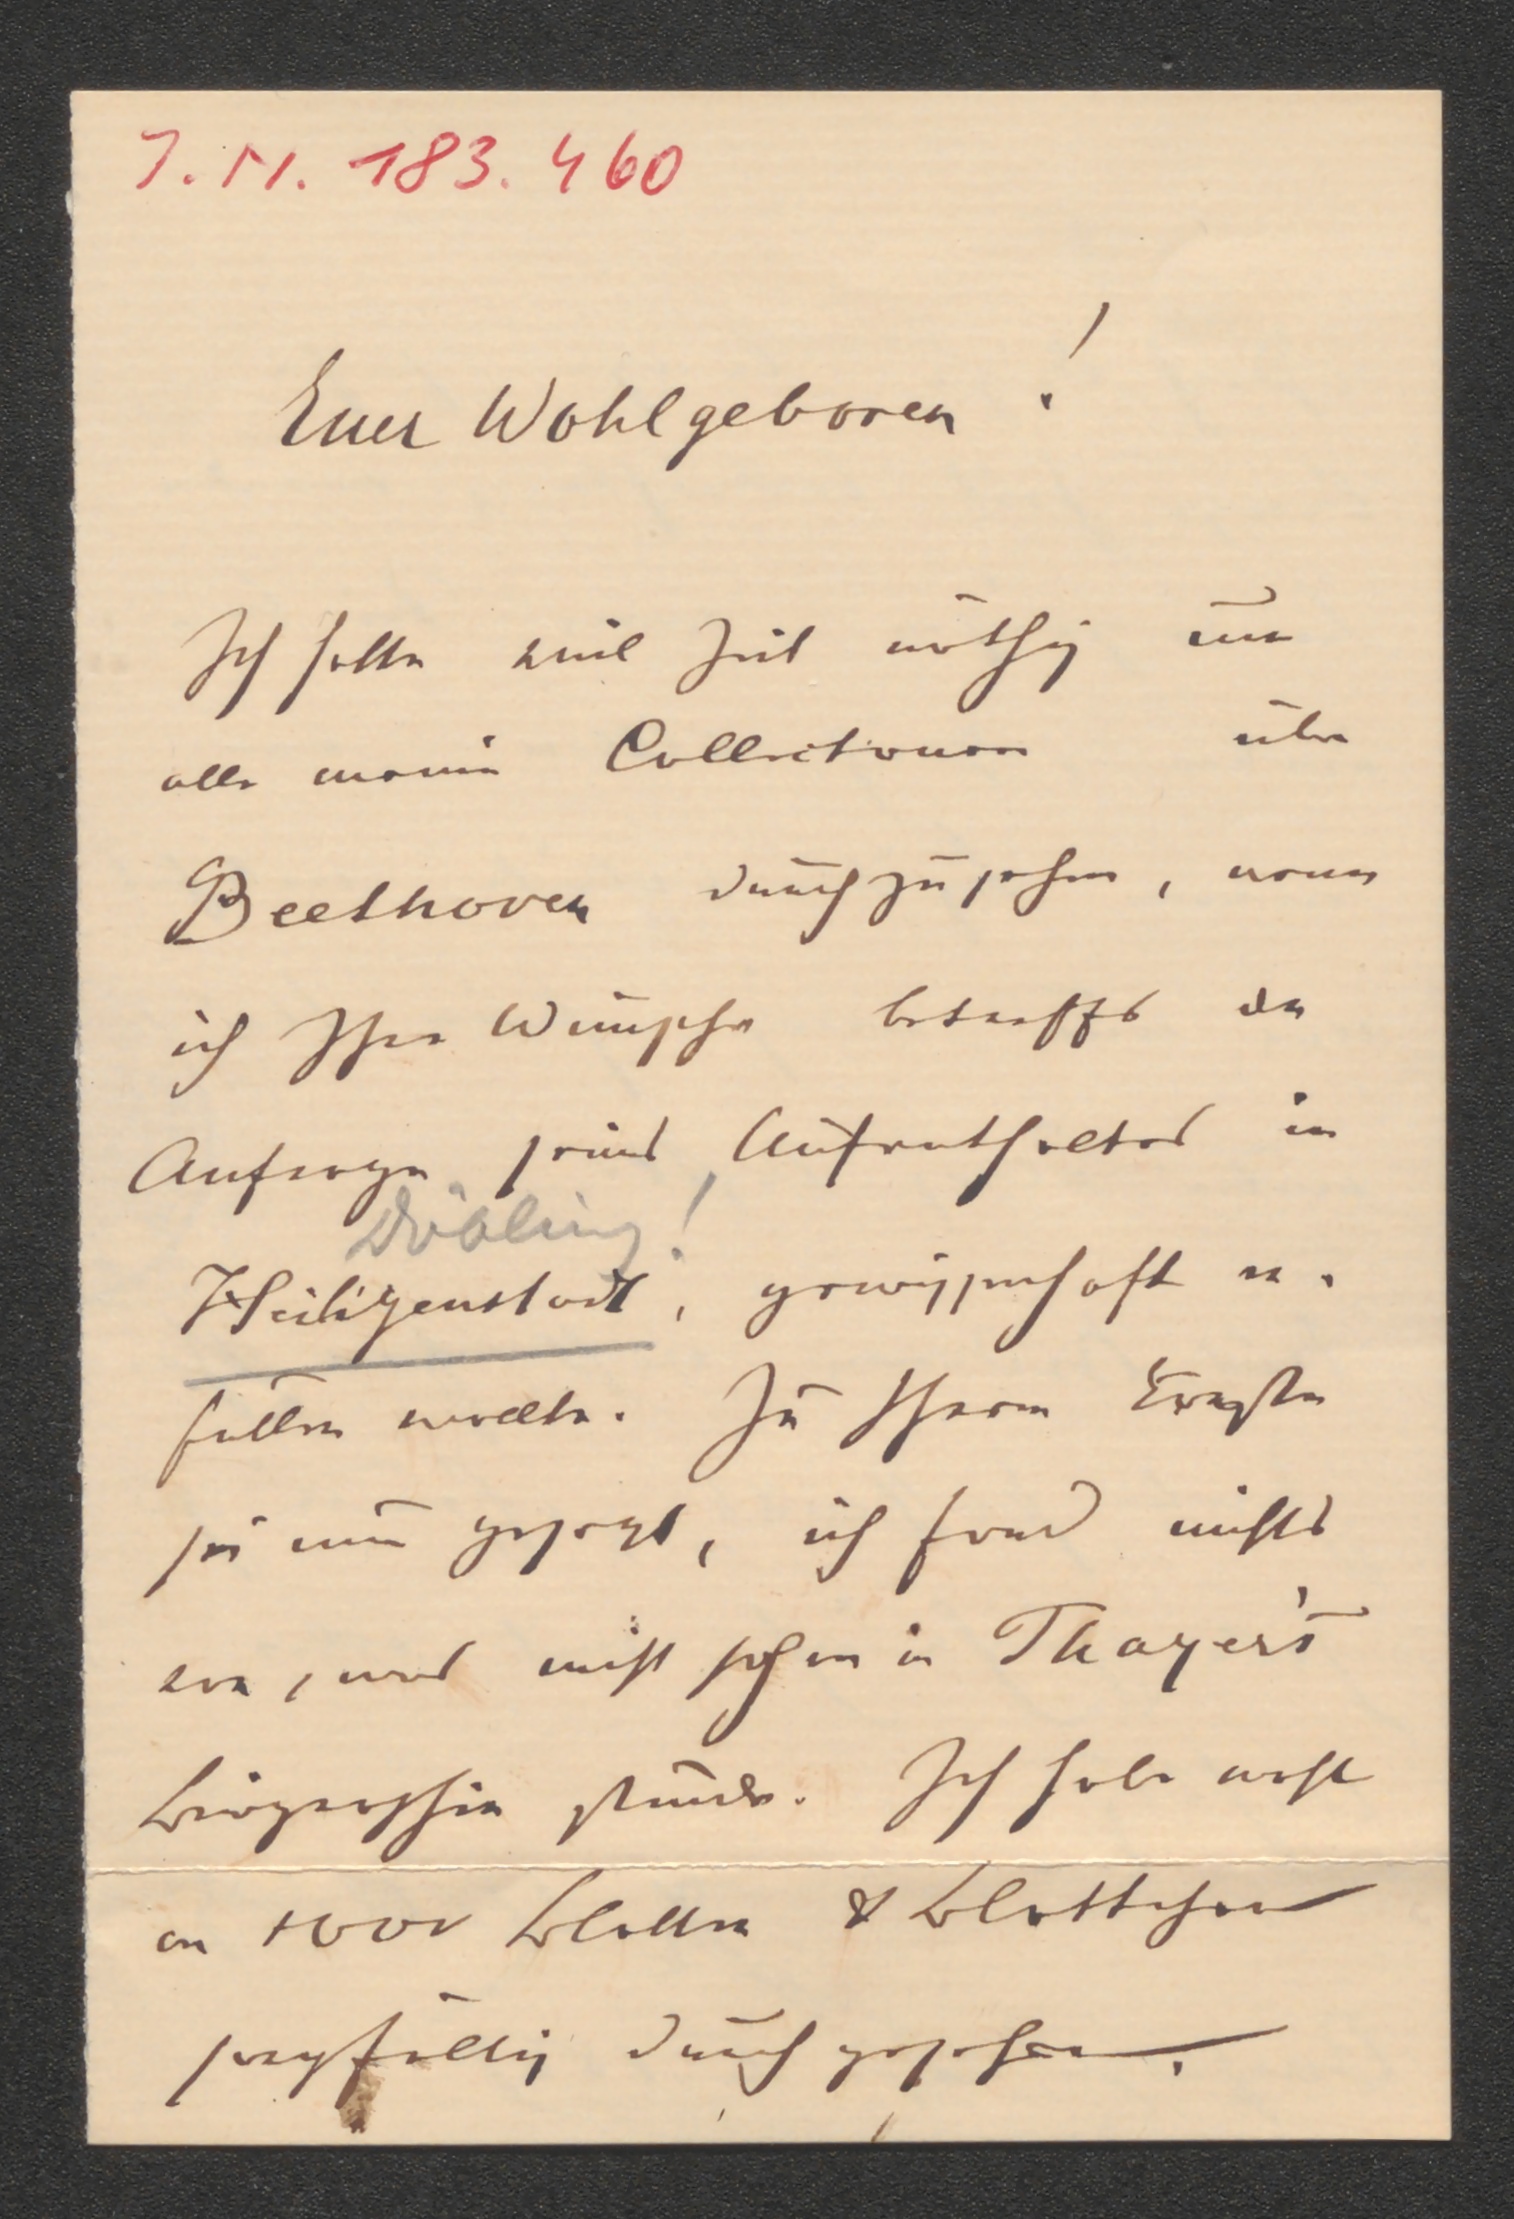 J. N. 183.460
Euer Wohlgeboren!
Ich hatte viel Zeit nöthig um
alle meine Collectionen über
Beethoven durchzusehen, wenn
ich Ihre Wünsche betreffs der
Anfrage seines Aufenthaltes in
Döbling!
Heiligenstadt, gewissenhaft er-
füllen wollte. Zu Ihrem
sei nun gesagt, ich fand nichts
vor, was nicht schon in Thayer's
Biographie stünde. Ich habe wohl
an 1000 Blätter & Blättchen
sorgfältig durchgesehen.